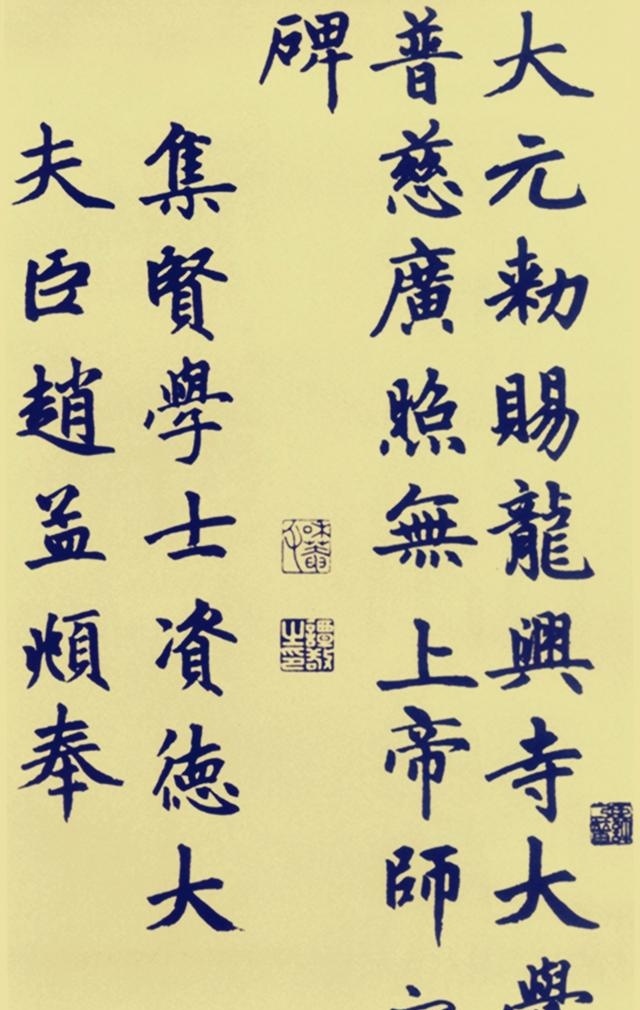 大元勅賜龍興寺大
普慈廣照無上帝師
碑
集賢學士資德大
夫臣趙孟頫奉